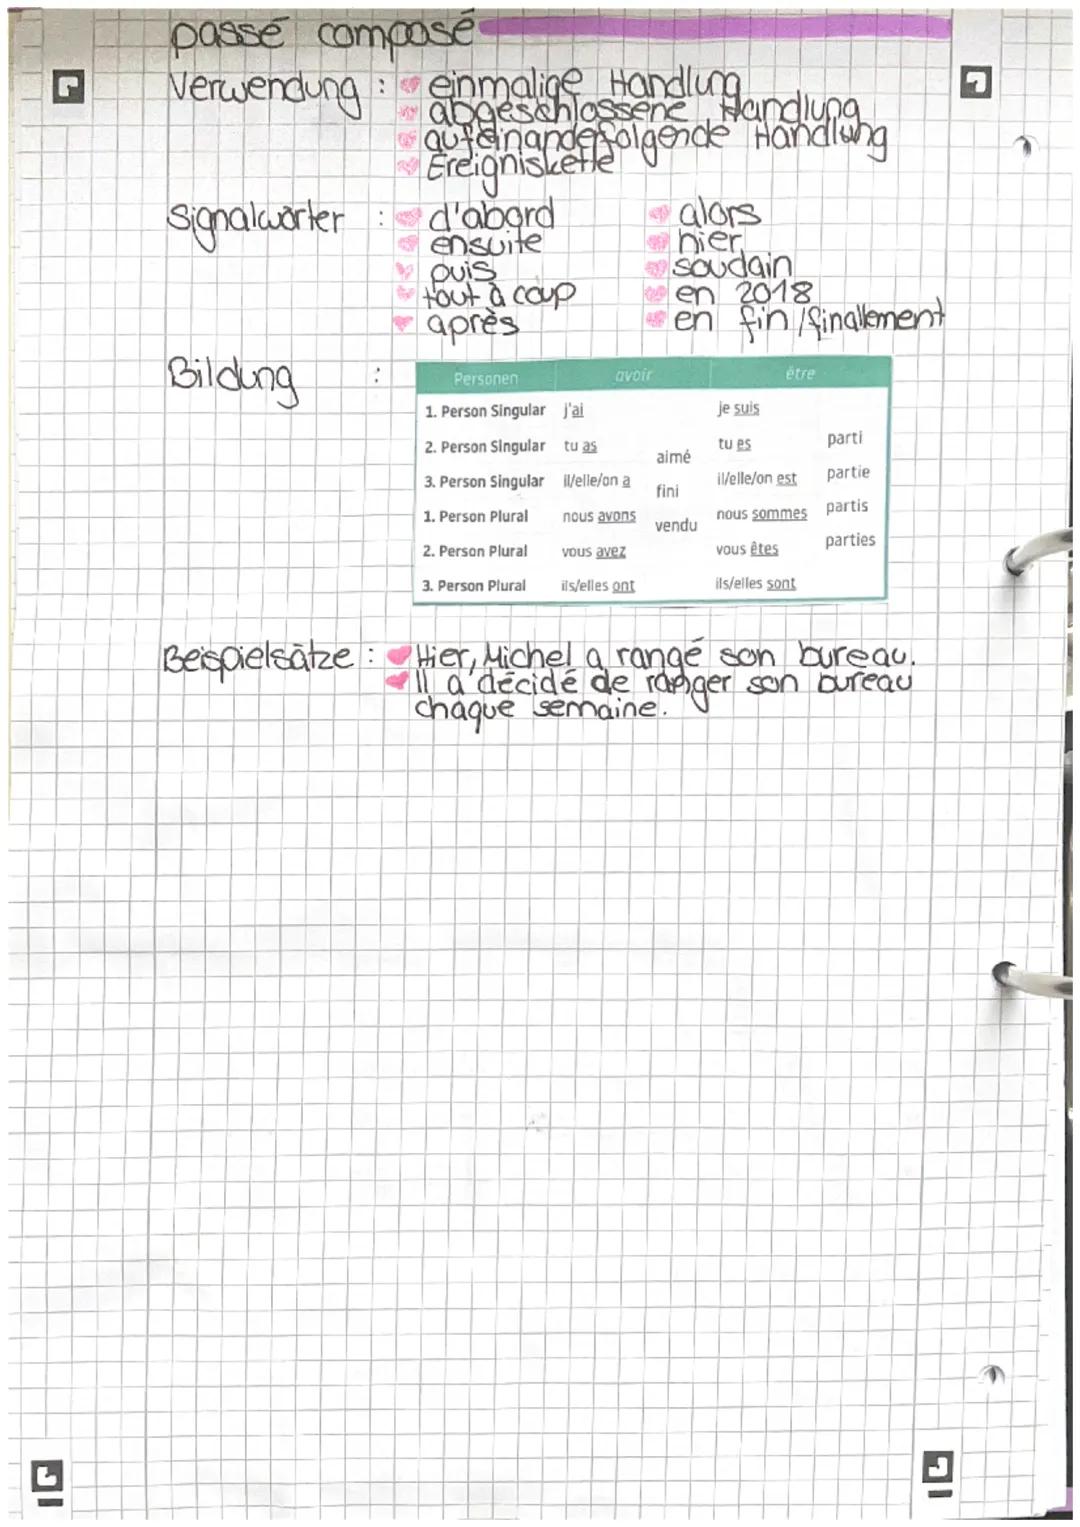 passé composé
Verwendung : einmalige Handlung
abgeschlossene Handlung
aufeinandefolgende Handlung
Ereigniskette
Signalwörter : d'abord alors
ensuite hier
puis soudain
tout à coup en 2018
après en fin/finallement
Bildung :
Personen avoir être
1. Person Singular j'ai je suis
2. Person Singular tu as tu es parti
aimé
3. Person Singular il/elle/on a il/elle/on est partie
fini
1. Person Plural nous avons nous sommes partis
vendu
2. Person Plural vous avez vous êtes parties
3. Person Plural ils/elles ont ils/elles sont
Beispielsätze : Hier, Michel a rangé son bureau.
Il a décidé de ranger son bureau
chaque semaine.